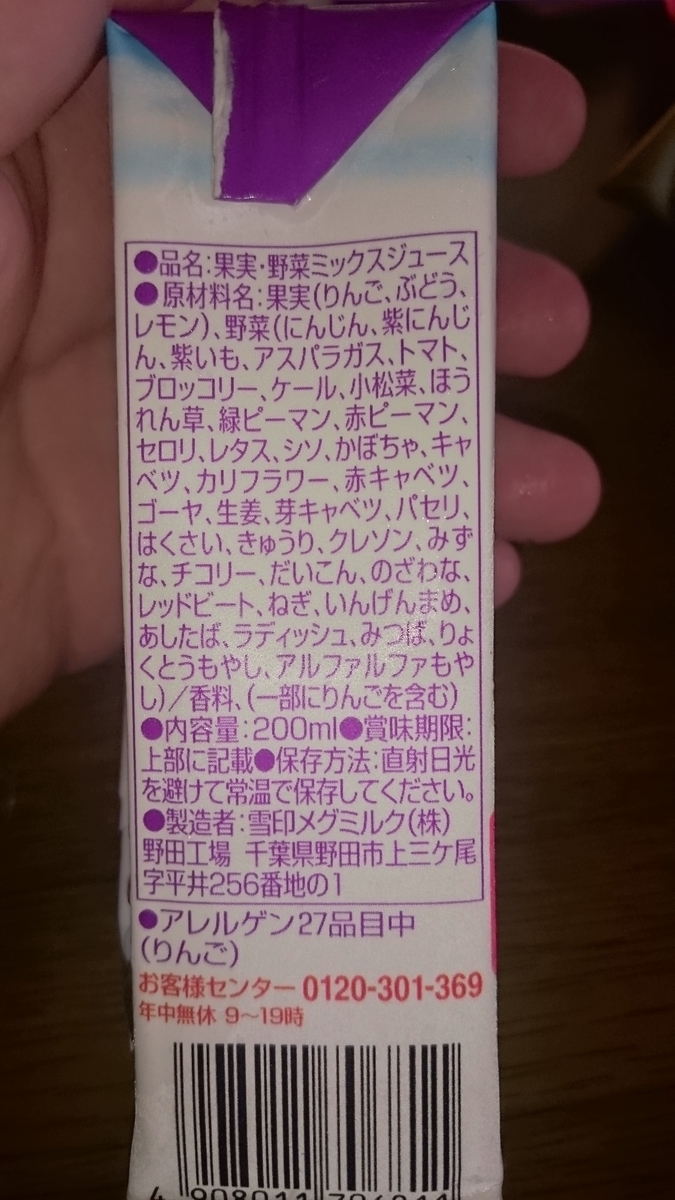 ●品名:果実・野菜ミックスジュース
●原材料名:果実(りんご、ぶどう、
レモン)、野菜(にんじん、紫にんじ
ん、紫いも、アスパラガス、トマト、
ブロッコリー、ケール、小松菜、ほう
れん草、緑ピーマン、赤ピーマン、
セロリ、レタス、シソ、かぼちゃ、キャ
ベツ、カリフラワー、赤キャベツ、
ゴーヤ、生姜、芽キャベツ、パセリ、
はくさい、きゅうり、クレソン、みず
な、チコリー、だいこん、のざわな、
レッドビート、ねぎ、いんげんまめ、
あしたば、ラディッシュ、みつば、りょ
くとうもやし、アルファルファもや
し)/香料、(一部にりんごを含む)
●内容量:200ml●賞味期限:
上部に記載●保存方法:直射日光
を避けて常温で保存してください。
●製造者:雪印メグミルク(株)
野田工場 千葉県野田市上三ケ尾
字平井256番地の1
●アレルゲン27品目中
(りんご)
お客様センター 0120-301-369
年中無休 9〜19時